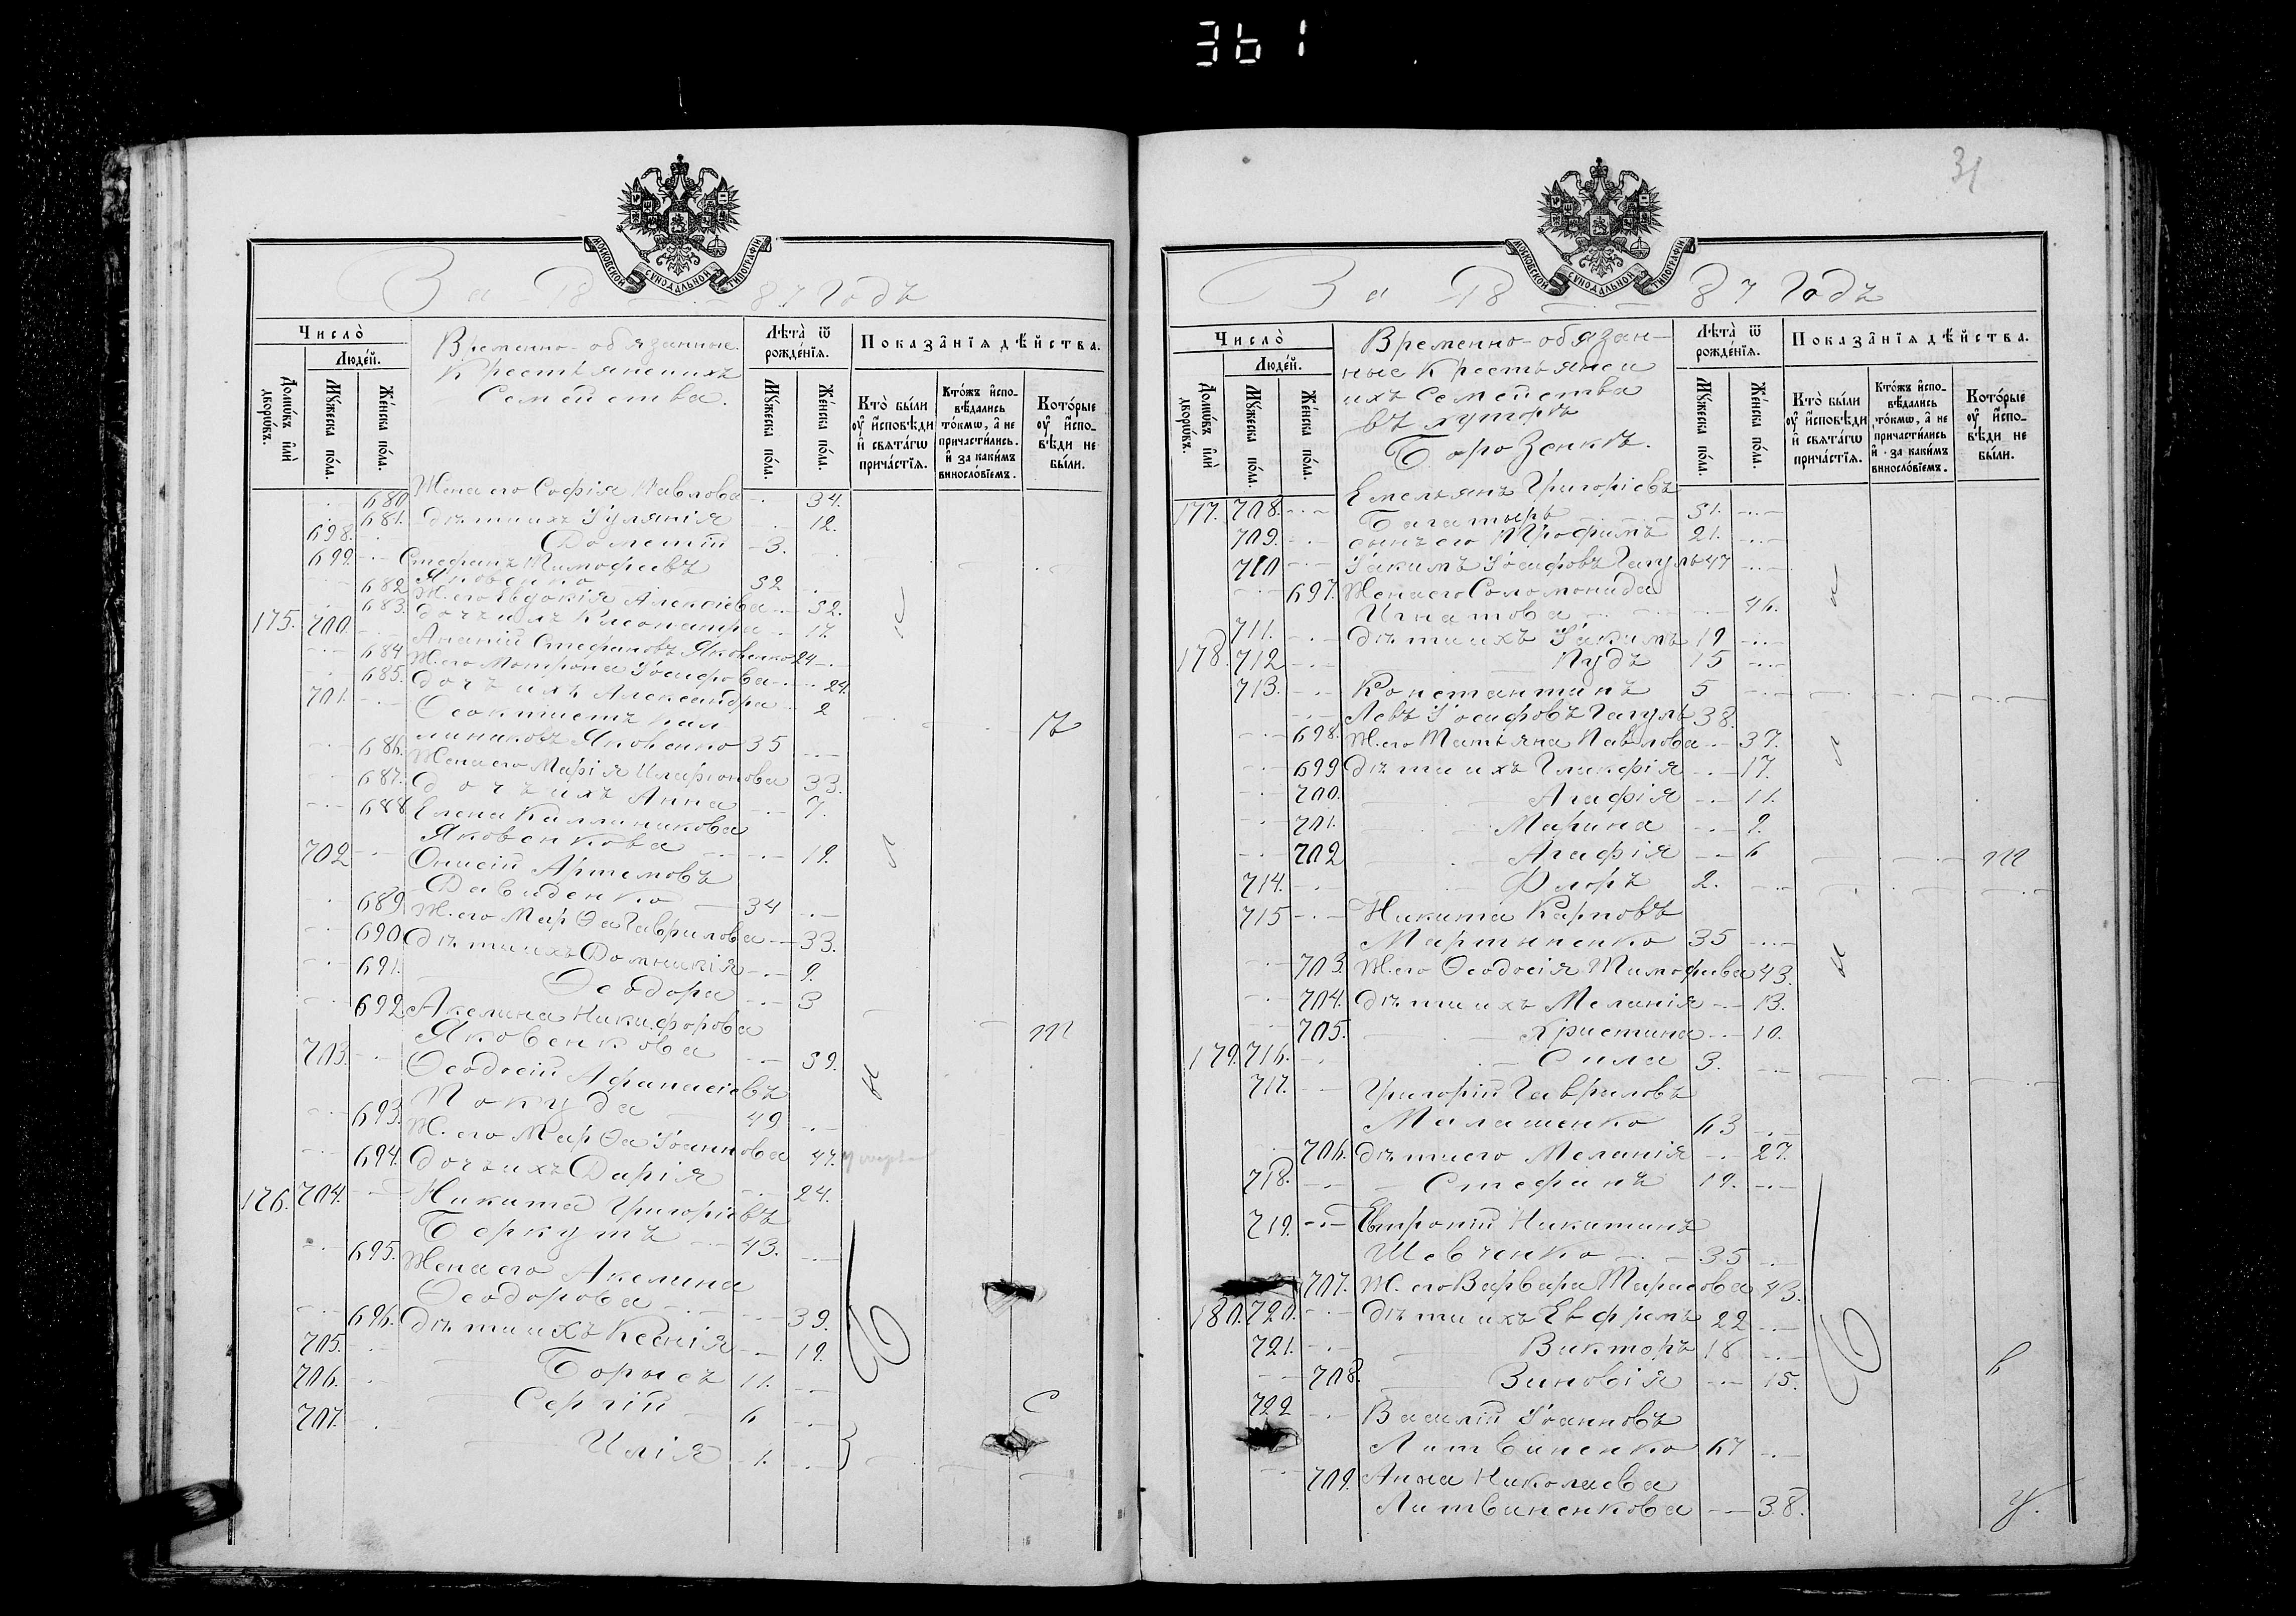 361
МОСКОВСКОЙ СѴНОДАЛЬНОЙ ТИПОГРАФІИ
За 1887 Годъ
Число̀
Людей.
Домѡвъ и҆лѝ дворѡвъ.
Мꙋжеска по́ла.
Же́нска по́ла.
Временно-обязанные
Крестьяне и ихъ
Семейства.
Лѣта̀ ѿ рожде́нїѧ.
Мꙋ́жеска по́ла.
Же́нска по́ла.
Показа̂нїѧ дѣ́йства.
Кто̀ бы́ли оу҆ и҆сповѣди и҆ свѧта́гѡ прича́стїѧ.
Кто́жъ и҆спо-вѣдались то́кмѡ, а҆ не причасти́лись. и҆ за каки́мъ винослові́емъ.
Кото́рые оу҆ и҆спо-вѣди не бы́ли.
680 Жена его Софія Павлова 34.
681. Дѣти ихъ Іуліанія 12.
698. Дометій 3.
699. Стефанъ Тимофеевъ
Яковенко 52
682 Ж. его Евдокія Алексіева 52.
683. дочь ихъ Клеопатра 17.
175. 700. Ананій Стефановъ Яковенко 24
684 Ж. его Матрона Іосифова 24.
685. Дочь ихъ Александра 2
701. Ѳеоктистъ Кал
линиковъ Яковенко 35
686. Жена его Марія Иларіонова 33.
687. Дочь ихъ Анна 7.
688 Елена Каллиникова
Яковенкова 19.
702 Онисій Артемовъ
Давиденко 34
689. Ж. его Марѳа Гаврилова 33.
690 Дѣти ихъ Домникія 9.
691. Ѳеодора 3
692 Акелина Никифорова
Яковенкова 59.
703. Ѳеодосій Афанасіевъ
Покуда 49
693. Ж. его Марѳа Іоаннова 47.
694. Дочь ихъ Дарія 24.
176. 704. Никита Григоріевъ
Беркутъ 43.
695. Жена его Акелина
Ѳеодорова 39.
696. Дѣти ихъ Ксенія 19.
705. Борисъ 11.
706. Сергій 6
707. Илія 1.
31
МОСКОВСКОЙ СѴНОДАЛЬНОЙ ТИПОГРАФІИ
За 1887 Годъ
Число̀
Людей.
Домѡвъ и҆лѝ дворѡвъ.
Мꙋжеска по́ла.
Же́нска по́ла.
Временно-обязан-
ные Крестьяне и
ихъ Семейства
въ хуторѣ
Борозенкѣ.
Лѣта̀ ѿ рожде́нїѧ.
Мꙋ́жеска по́ла.
Же́нска по́ла.
Показа̂нїѧ дѣ́йства.
Кто̀ бы́ли оу҆ и҆сповѣди и҆ свѧта́гѡ прича́стїѧ.
Кто́жъ и҆спо-вѣдались то́кмѡ, а҆ не причасти́лись и҆ за каки́мъ винослові́емъ.
Кото́рые оу҆ и҆спо-вѣди не бы́ли.
177. 708. Емельянъ Григоріевъ
Багатырь 51.
709. сынъ его Трофимъ 21.
710 Іакимъ Іосифовъ Гагуль 47
697. Жена его Соломонида
Игнатова 46.
711. Дѣти ихъ Іакимъ 19
178. 712 Пудъ 15
713. Константинъ 5
Левъ Іосифовъ Гагуль 38.
698. Ж. его Татьяна Павлова 37.
699 Дѣти ихъ Гликерія 17.
700. Агафія 11.
701. Марина 9.
702 Агафія 6
714. Флоръ 2.
715 Никита Карповъ
Мартыненко 35
703. Ж. его Ѳеодосія Тимофеева 43.
704. Дѣти ихъ Меланія 13.
705. Христина 10.
179. 716. Сила 3.
717. Григорій Гавриловъ
Малашенко 63
706. Дѣти его Меланія 27.
718. Стефанъ 19.
719. Евтропій Никитинъ
Шевченко 35
707. Ж. его Варвара Тарасова 43.
180. 720. Дѣти ихъ Ефремъ 22
721. Викторъ 18
708. Зиновія 15.
722 Василій Іоанновъ
Литвиненко 67
709. Анна Николаева
Литвиненкова 38.